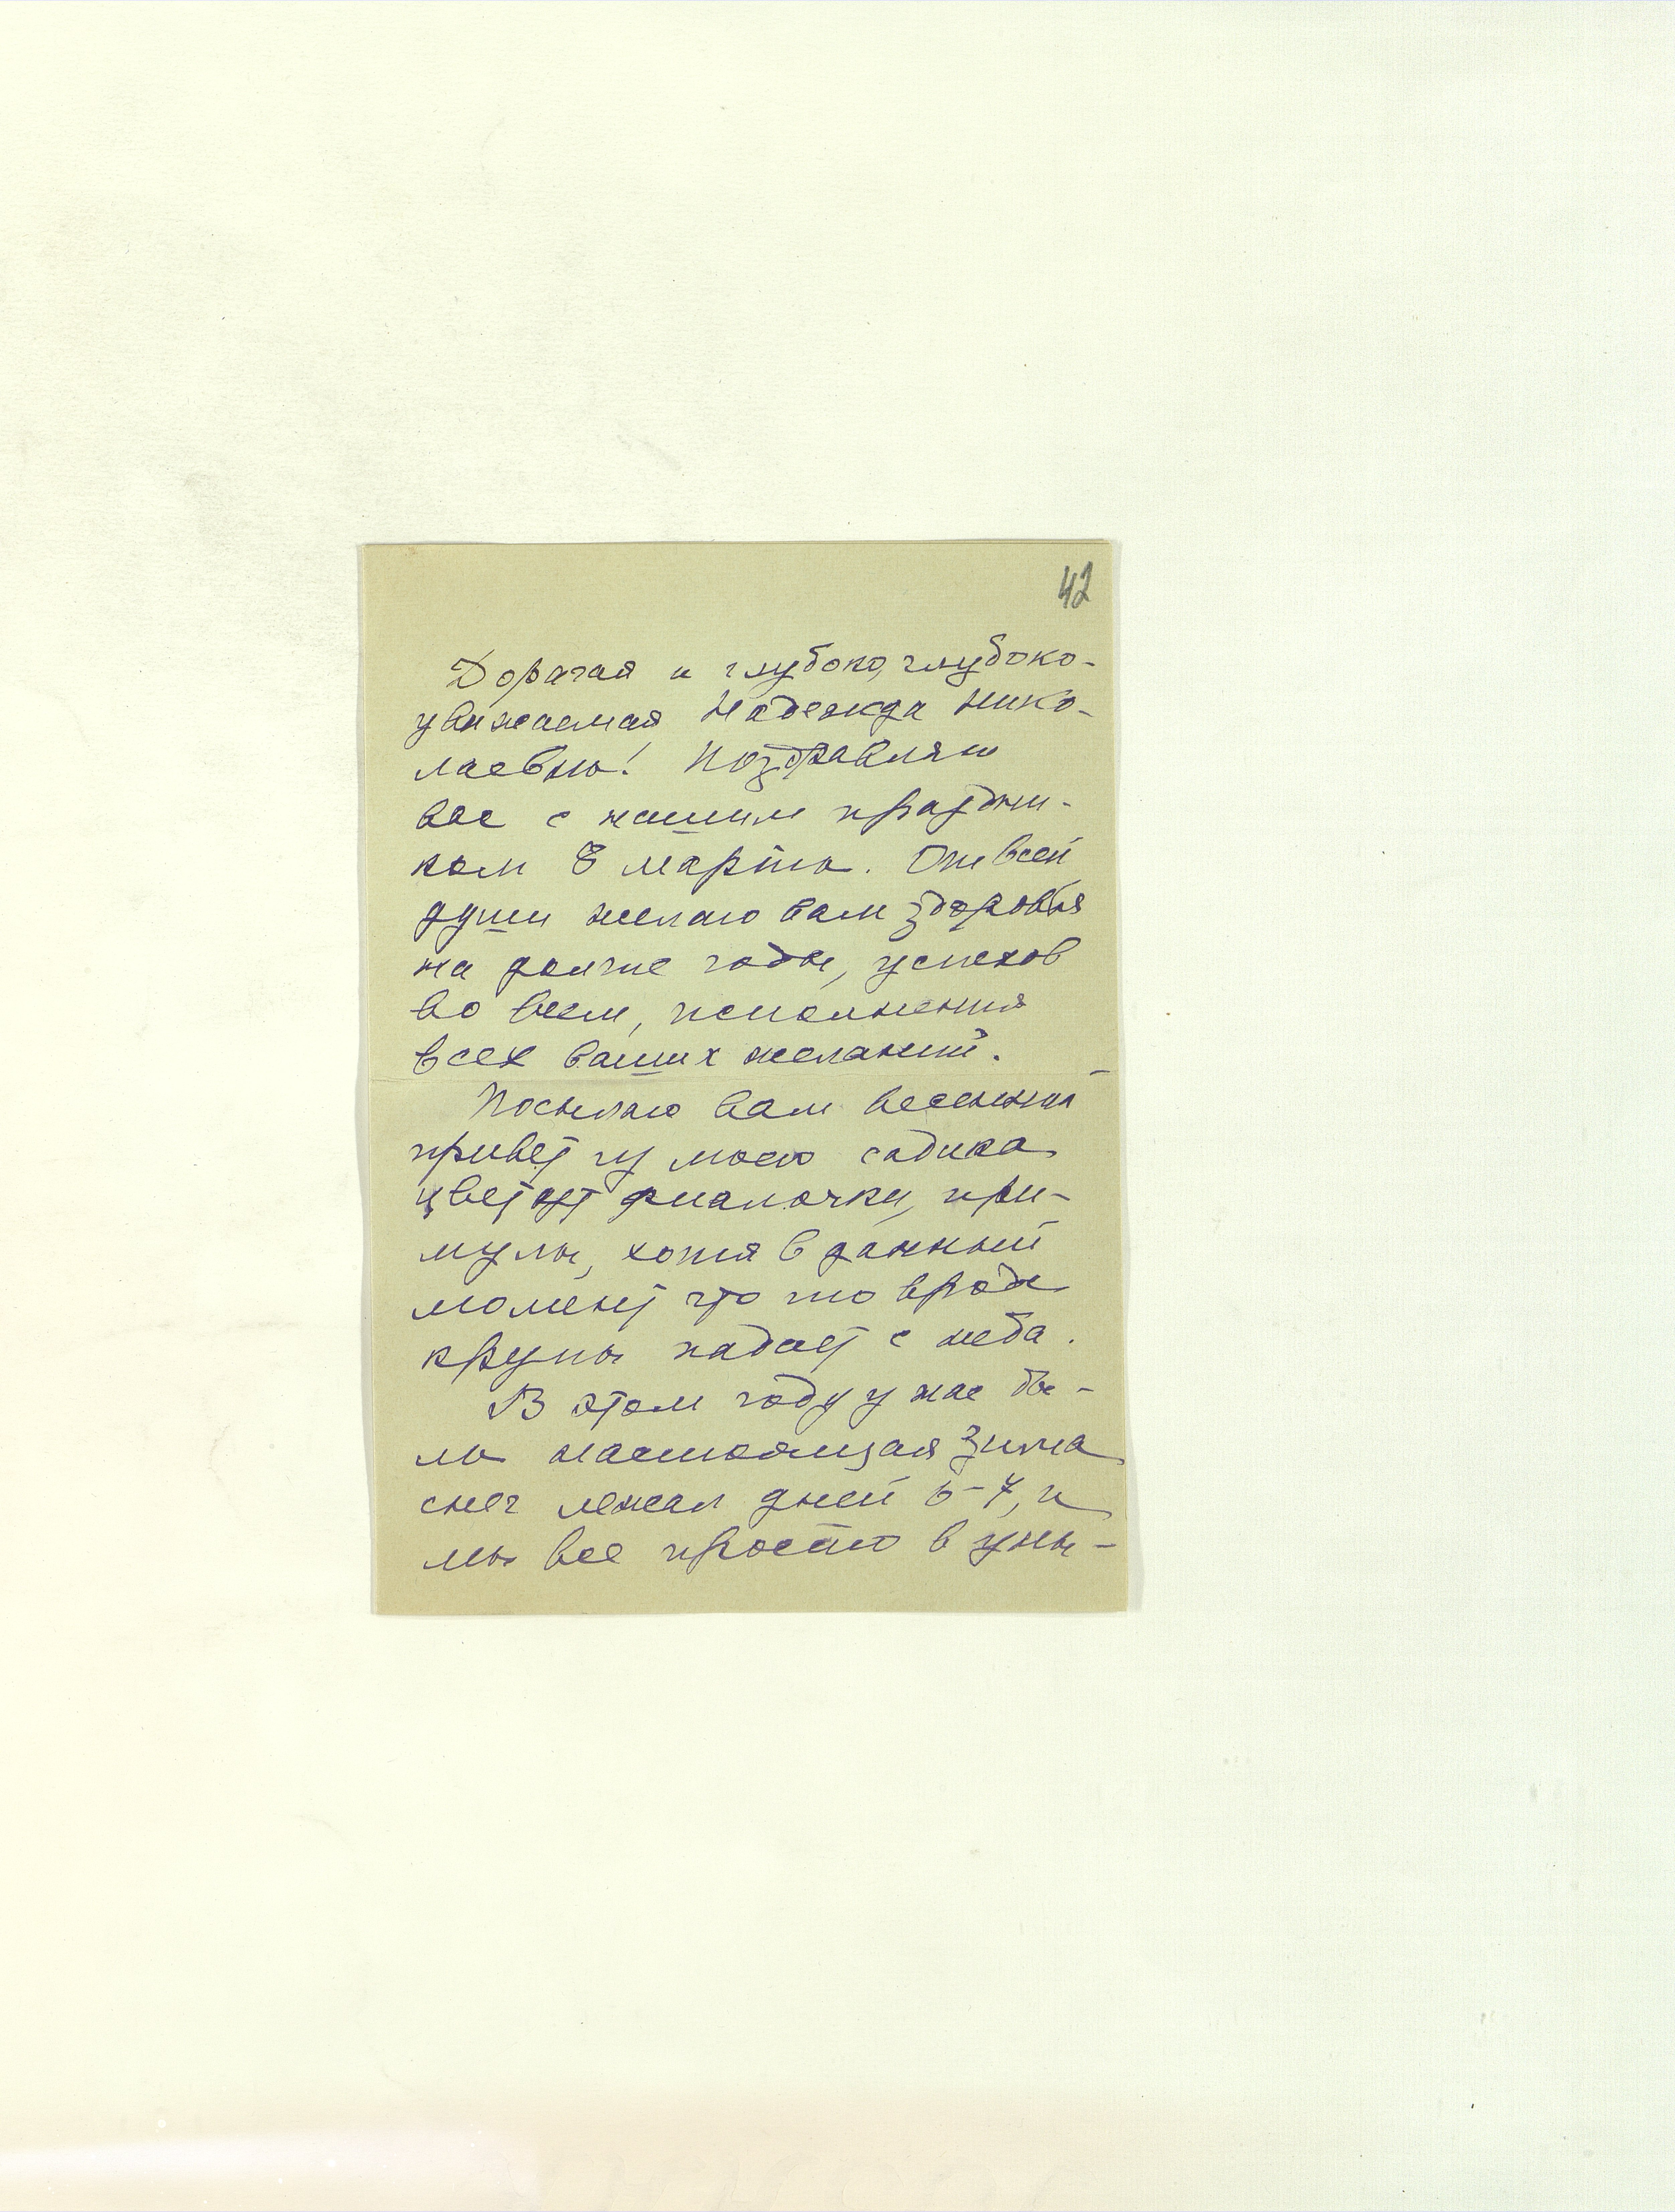 42
Дорогая и глубоко, глубоко-
уважаемая Надежда Нико-
лаевна! Поздравляю
вас с нашим праздни-
ком 8 марта. От всей
души желаю вам здоровья
на долгие годы, успехов
во всем, исполнения
всех ваших желаний.
Посылаю вам весенний
привет из моего садика
цветут фиалочки, при-
мулы, хотя в данный
момент что то вроде
крупы падает с неба.
В этом году у нас бы-
ла настоящая зима
снег лежал дней 6-7, и
мы все просто в уны-